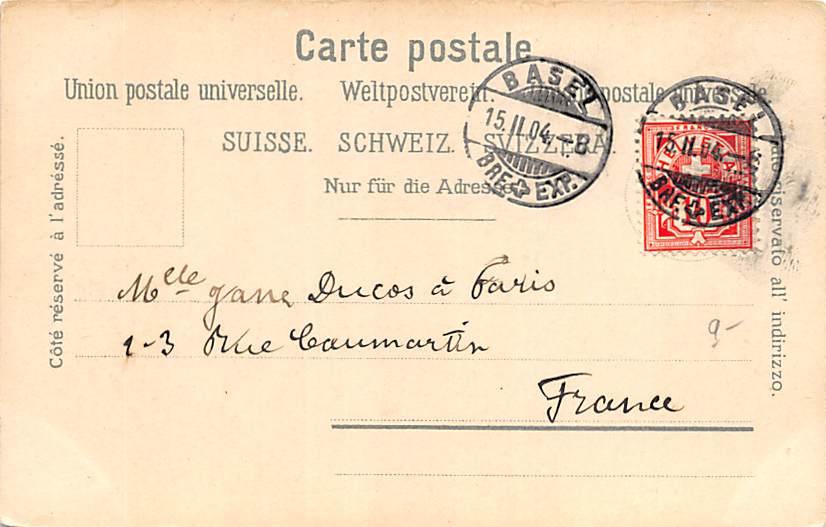 Carte postale
Union postale universelle. Weltpostverein. postale universelle.
SUISSE. SCHWEIZ. SVIZZERA.
Nur für die Adresse.
Côté réservé à l'adressé.
riservato all' indirizzo.
BASEL
15.II.04.–8
BRF. EXP.
BASEL
15.II.04.
BRF. EXP.
HELVETIA
FRANCO
10
Melle Jane Ducos à Paris
1-3 Rue Caumartin
France
9-